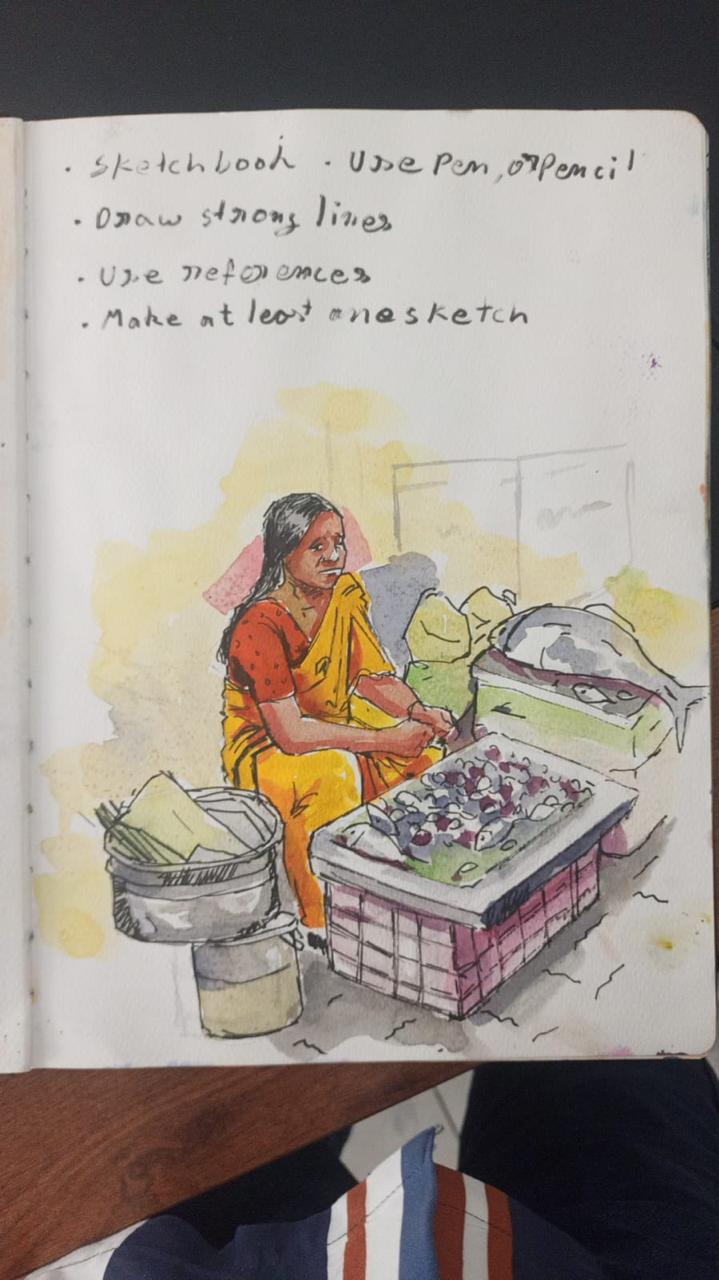 · Sketchbook · Use Pen, or Pencil
· Draw strong lines
· Use references
· Make at least one sketch